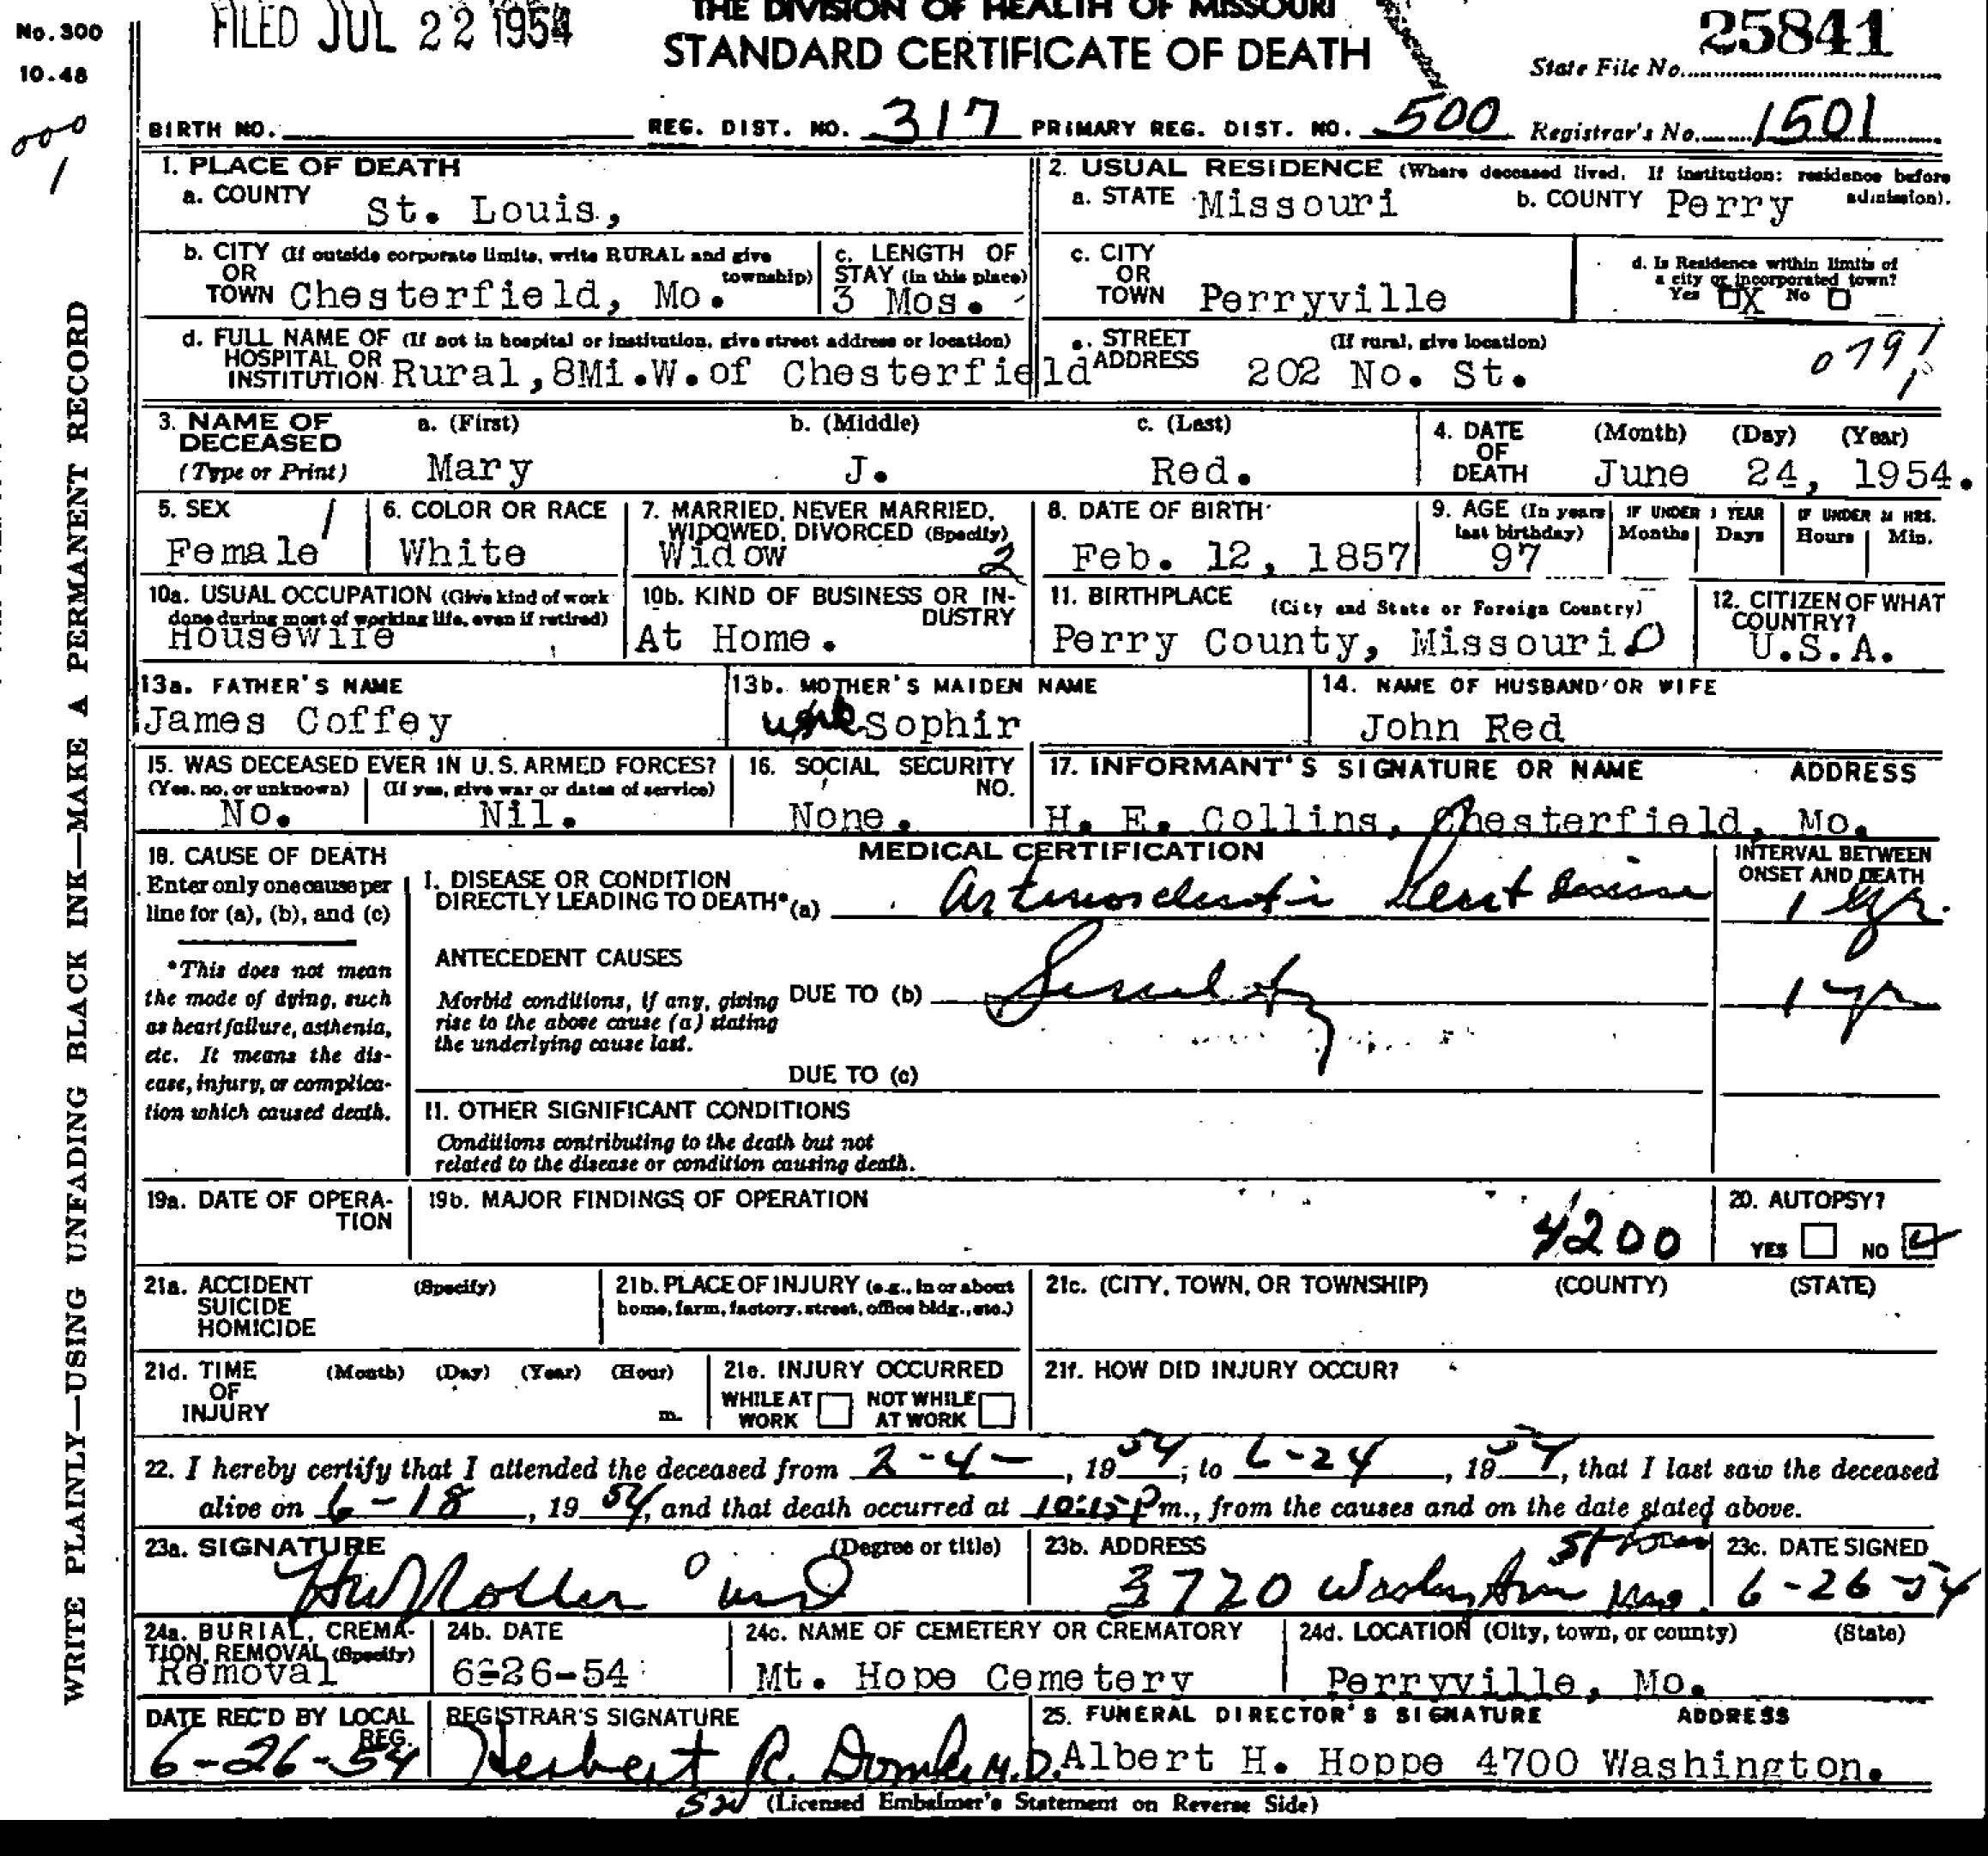 No. 300
10.48
FILED JUL 22 1954
THE DIVISION OF HEALTH OF MISSOURI
STANDARD CERTIFICATE OF DEATH
State File No. 25841
000
1
BIRTH NO. REG. DIST. NO. 317 PRIMARY REG. DIST. NO. 500 Registrar's No. 1501
1. PLACE OF DEATH
a. COUNTY St. Louis,
2. USUAL RESIDENCE (Where deceased lived. If institution: residence before admission).
a. STATE Missouri b. COUNTY Perry
b. CITY (If outside corporate limits, write RURAL and give township)
OR
TOWN Chesterfield, Mo.
c. LENGTH OF
STAY (in this place)
3 Mos.
c. CITY
OR
TOWN Perryville
d. Is Residence within limits of
a city or incorporated town?
Yes X No
d. FULL NAME OF (If not in hospital or institution, give street address or location)
HOSPITAL OR
INSTITUTION Rural,8Mi.W.of Chesterfield
e. STREET (If rural, give location)
ADDRESS 202 No. St.
0791
3. NAME OF
DECEASED
(Type or Print)
a. (First) b. (Middle) c. (Last)
Mary J. Red.
4. DATE (Month) (Day) (Year)
OF
DEATH June 24, 1954.
5. SEX
Female
6. COLOR OR RACE
White
7. MARRIED, NEVER MARRIED,
WIDOWED, DIVORCED (Specify)
Widow 2
8. DATE OF BIRTH
Feb. 12, 1857
9. AGE (In years
last birthday)
97
IF UNDER 1 YEAR
Months Days
IF UNDER 24 HRS.
Hours Min.
10a. USUAL OCCUPATION (Give kind of work
done during most of working life, even if retired)
Housewife
10b. KIND OF BUSINESS OR IN-
DUSTRY
At Home.
11. BIRTHPLACE (City and State or Foreign Country)
Perry County, Missouri.0
12. CITIZEN OF WHAT
COUNTRY?
U.S.A.
13a. FATHER'S NAME
James Coffey
13b. MOTHER'S MAIDEN NAME
Sophir
14. NAME OF HUSBAND OR WIFE
John Red
15. WAS DECEASED EVER IN U.S. ARMED FORCES?
(Yes, no, or unknown) (If yes, give war or dates of service)
No. Nil.
16. SOCIAL SECURITY
NO.
None.
17. INFORMANT'S SIGNATURE OR NAME ADDRESS
H. E. Collins, Chesterfield, Mo.
18. CAUSE OF DEATH
Enter only one cause per
line for (a), (b), and (c)
*This does not mean
the mode of dying, such
as heart failure, asthenia,
etc. It means the dis-
ease, injury, or complica-
tion which caused death.
MEDICAL CERTIFICATION
INTERVAL BETWEEN
ONSET AND DEATH
I. DISEASE OR CONDITION
DIRECTLY LEADING TO DEATH*(a) Arteriosclerotic Heart disease 1 yr.
ANTECEDENT CAUSES
Morbid conditions, if any, giving
rise to the above cause (a) stating
the underlying cause last.
DUE TO (b) Senility 1 yr
DUE TO (c)
II. OTHER SIGNIFICANT CONDITIONS
Conditions contributing to the death but not
related to the disease or condition causing death.
19a. DATE OF OPERA-
TION
19b. MAJOR FINDINGS OF OPERATION
4200
20. AUTOPSY?
YES NO
21a. ACCIDENT (Specify)
SUICIDE
HOMICIDE
21b. PLACE OF INJURY (e.g., in or about
home, farm, factory, street, office bldg., etc.)
21c. (CITY, TOWN, OR TOWNSHIP) (COUNTY) (STATE)
21d. TIME (Month) (Day) (Year) (Hour)
OF
INJURY m.
21e. INJURY OCCURRED
WHILE AT WORK NOT WHILE AT WORK
21f. HOW DID INJURY OCCUR?
22. I hereby certify that I attended the deceased from 2-4-, 1954, to 6-24, 1954, that I last saw the deceased
alive on 6-18, 1954, and that death occurred at 10:15 P m., from the causes and on the date stated above.
23a. SIGNATURE (Degree or title)
23b. ADDRESS
3720 Washington
23c. DATE SIGNED
6-26-54
24a. BURIAL, CREMA-
TION, REMOVAL (Specify)
Removal
24b. DATE
6-26-54
24c. NAME OF CEMETERY OR CREMATORY
Mt. Hope Cemetery
24d. LOCATION (City, town, or county) (State)
Perryville, Mo.
DATE REC'D BY LOCAL
REG.
6-26-54
REGISTRAR'S SIGNATURE
Herbert R. Domke M.D.
25. FUNERAL DIRECTOR'S SIGNATURE ADDRESS
Albert H. Hoppe 4700 Washington.
(Licensed Embalmer's Statement on Reverse Side)
WRITE PLAINLY—USING UNFADING BLACK INK—MAKE A PERMANENT RECORD